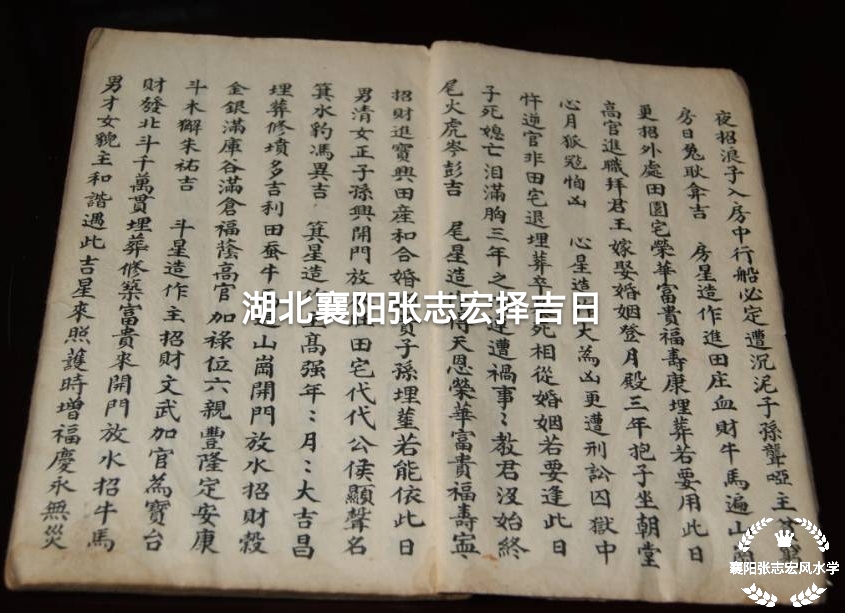 夜招浪子入房中行船必定遭沉泥子孫聾啞主
房日兔耿弇吉 房星造作進田庄血財牛馬遍山崗
更招外處田園宅榮華富貴福壽康埋葬若要用此日
高官進職拜君王嫁娶婚姻登月殿三年抱子坐朝堂
心月狐寇恂凶 心星造大為凶更遭刑訟囚獄中
忤逆官非田宅退埋葬卒死相從婚姻若要逢此日
子死媳亡泪滿胸三年之遭禍事〻教君沒始終
尾火虎岑彭吉 尾星造得天恩榮華富貴福壽寍
招財進寶興田產和合婚貢子孫埋塟若能依此日
男清女正子孫興開門放田宅代代公侯顯聲名
箕水豹馮異吉 箕星造主高强年〻月〻大吉昌
埋葬修墳多吉利田蚕牛山崗開門放水招財穀
金銀滿庫谷滿倉福蔭高官加祿位六親豐隆定安康
斗木獬朱祐吉 斗星造作主招財文武加官為寶台
財發北斗千萬貫埋葬修築富貴來開門放水招牛馬
男才女貌主和諧遇此吉星來照護時增福慶永無災
湖北襄阳张志宏择吉日
襄阳张志宏风水学